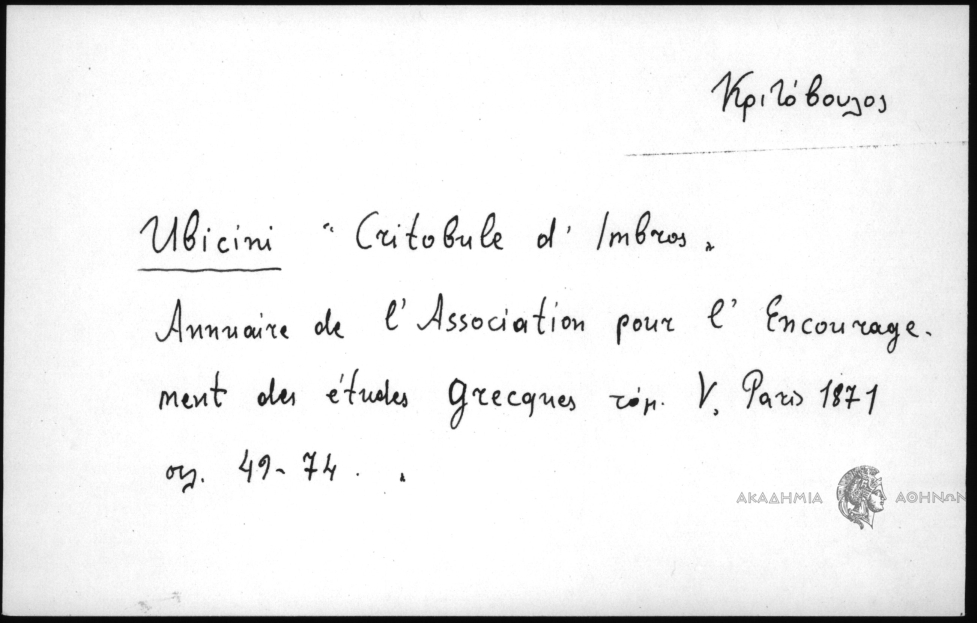 Κριτόβουλος
Ubicini "Critobule d' Imbros"
Annuaire de l' Association pour l' Encourage-
ment des études Grecques τόμ. V, Paris 1871
σελ. 49-74.
ΑΚΑΔΗΜΙΑ ΑΘΗΝΩΝ